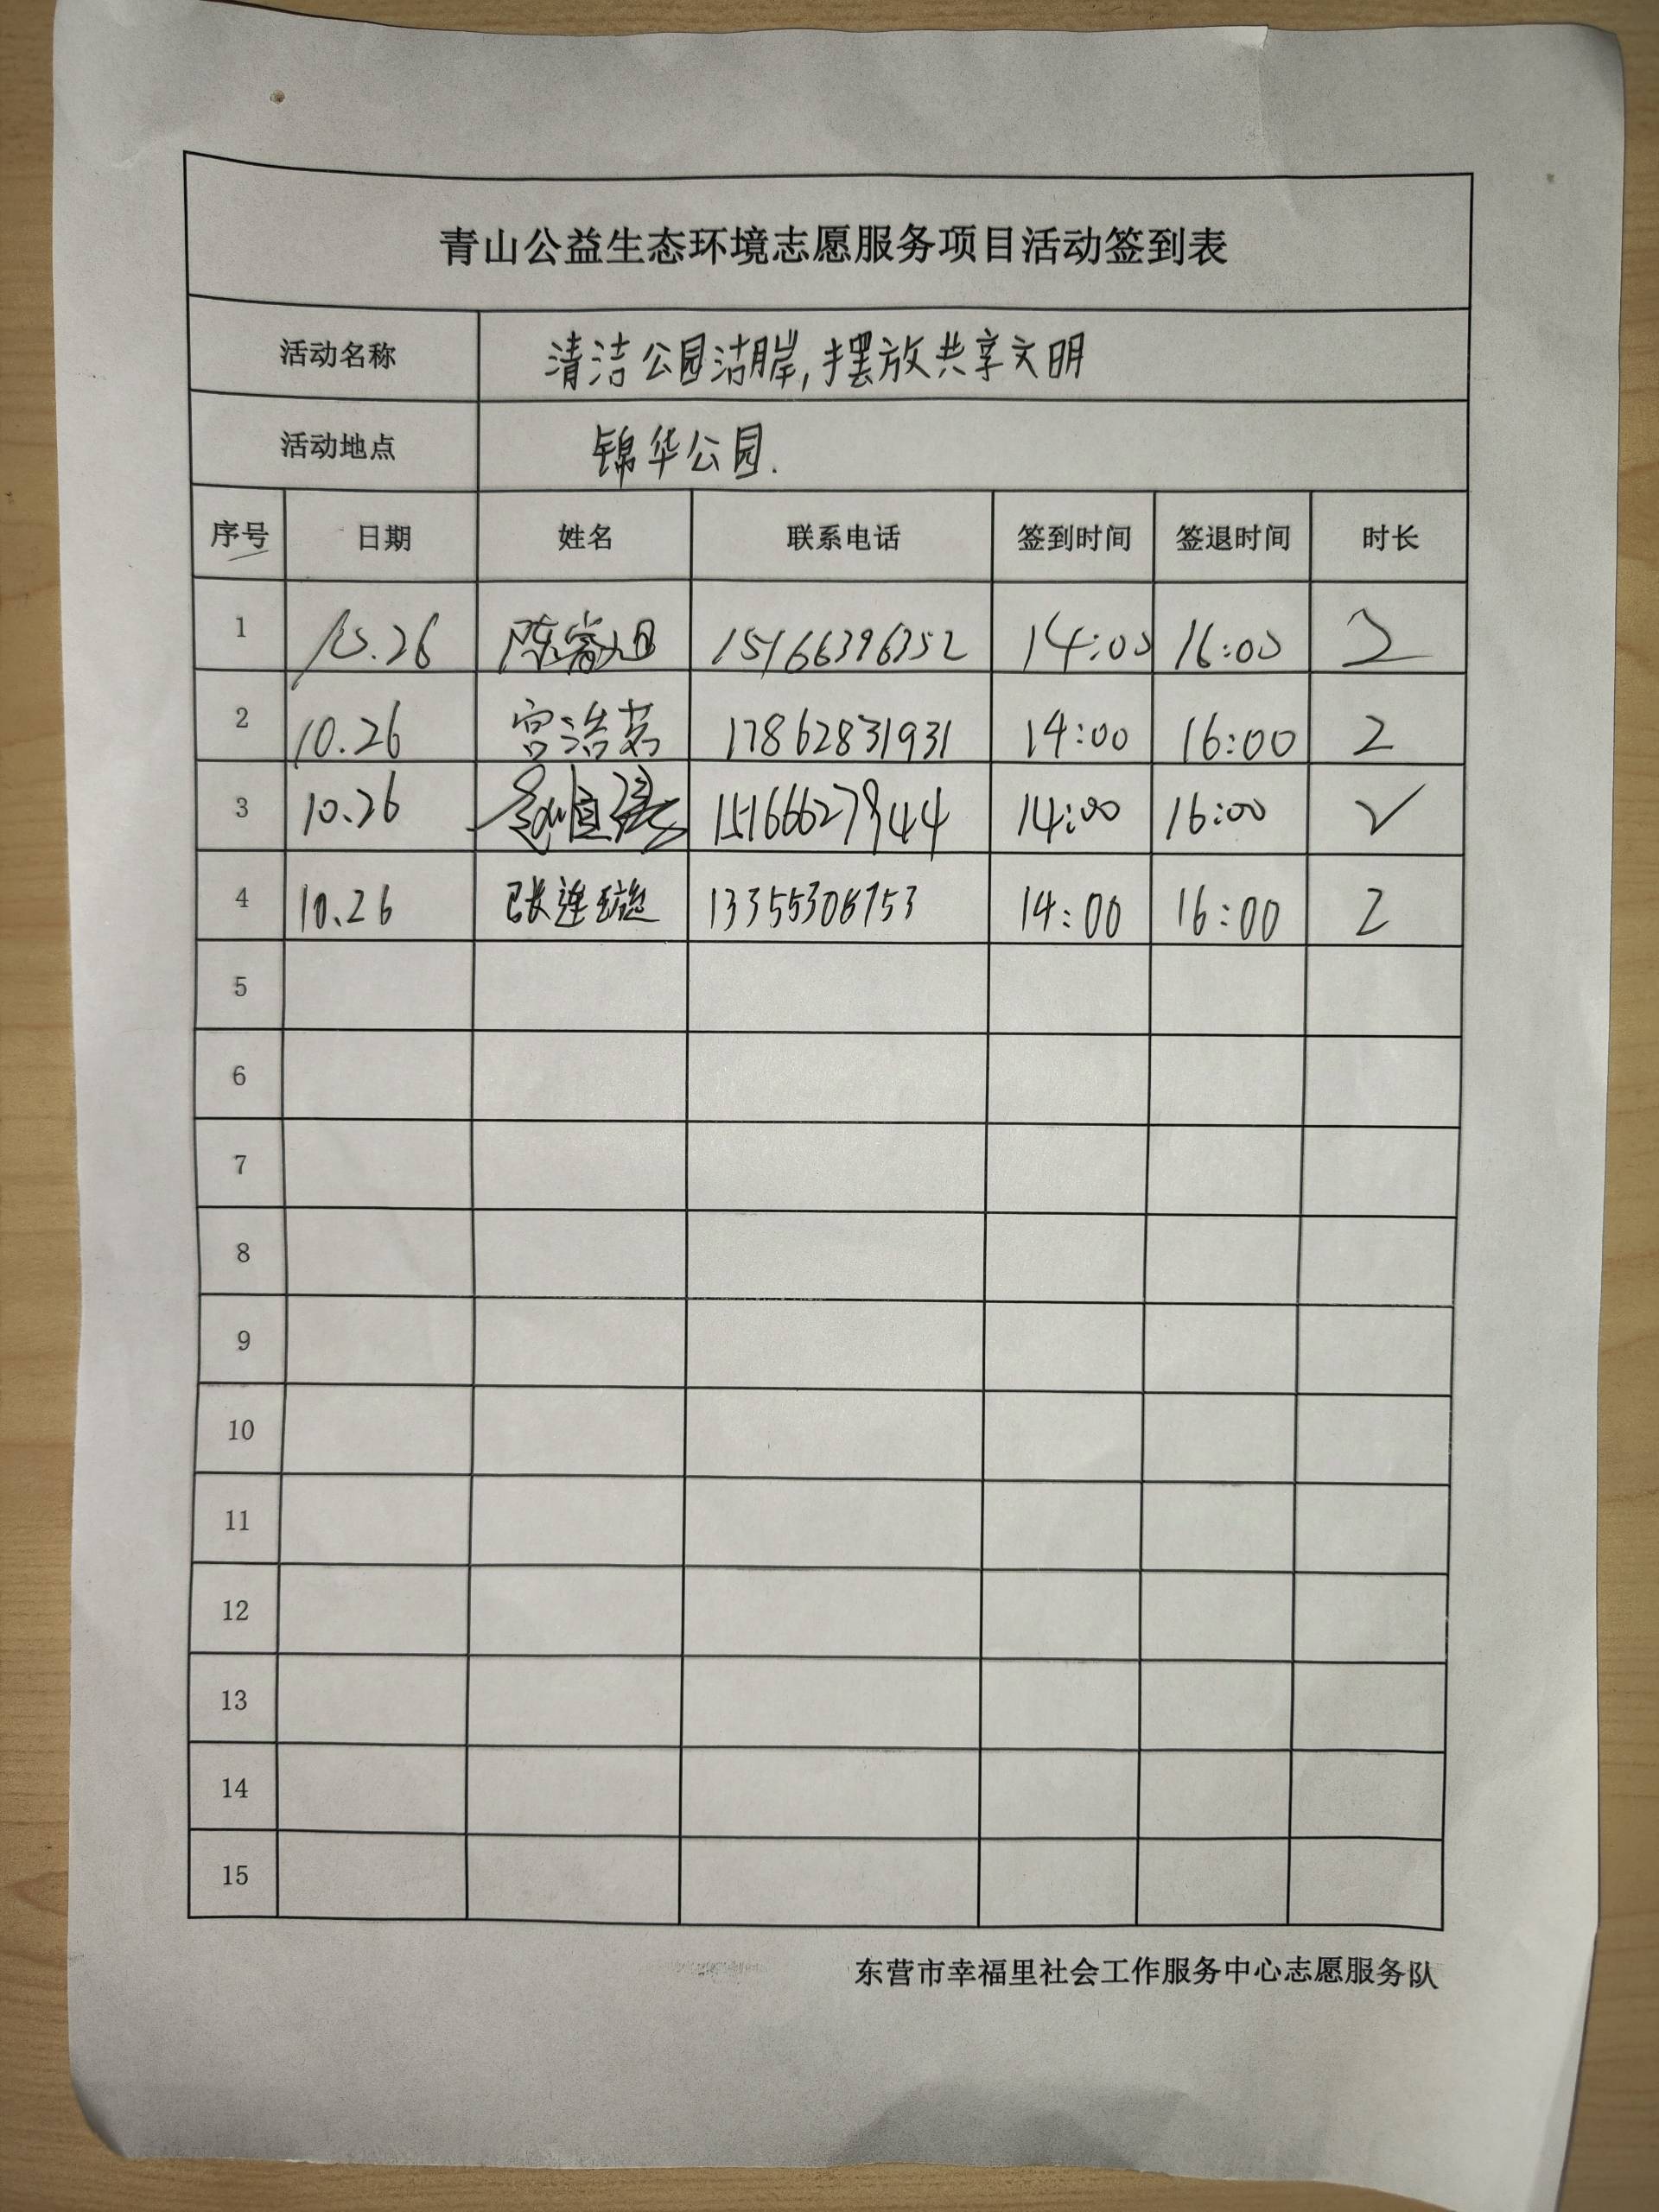 青山公益生态环境志愿服务项目活动签到表
活动名称 清洁公园湖岸,摆放共享文明
活动地点 锦华公园.
序号 日期 姓名 联系电话 签到时间 签退时间 时长
1 10.26 陈睿旭 15166396352 14:00 16:00 2
2 10.26 宫浩茗 17862831931 14:00 16:00 2
3 10.26 14:00 16:00
4 10.26 张连璇 13355306753 14:00 16:00 2
5
6
7
8
9
10
11
12
13
14
15
东营市幸福里社会工作服务中心志愿服务队